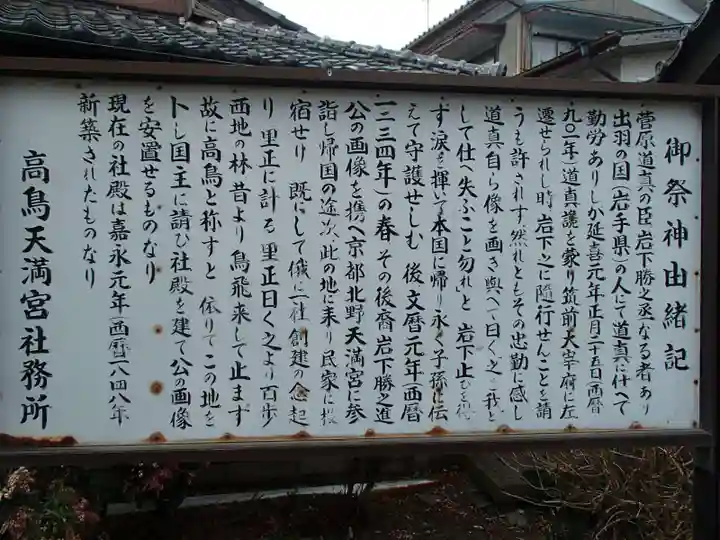 御祭神由緒記
菅原道真の臣岩下勝之丞なる者あり
出羽の国(岩手県)の人にて道真に仕へて
勤労ありしか延喜元年正月二十五日(西暦
九〇一年)道真讒を蒙り筑前大宰府に左
遷せられし時岩下之に随行せんことを請
うも許されず然れともその忠勤に感し
道真自ら像を画き与へて曰く之を我と
して仕へ失ふこと勿れと 岩下止むを得
ず涙を揮って本国に帰り永く子孫に伝
えて守護せしむ 後文暦元年(西暦
一二三四年)の春 その後裔岩下勝之進
公の画像を携へ京都北野天満宮に参
詣し帰国の途次此の地に来り民家に投
宿せり 既にして俄に一社創建の念起
り 里正に計る 里正曰く之より百歩
西地の林昔より鳥飛来して止まず
故に高鳥と称すと 依りてこの地を
卜し国主に請ひ社殿を建て公の画像
を安置せるものなり
現在の社殿は嘉永元年(西暦一八四八年
新築されたものなり
高鳥天満宮社務所